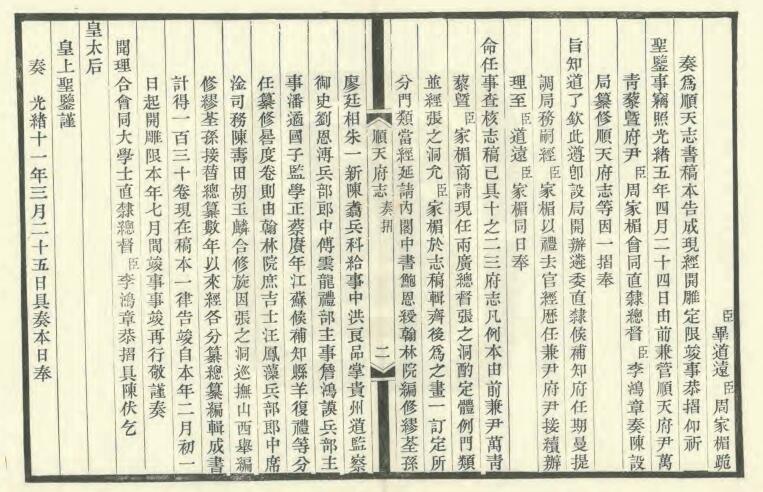 臣畢道遠臣周家楣跪
奏爲順天志書稿本告成現經開雕定限竣事恭摺仰祈
聖鑒事竊照光緒五年四月二十四日由前兼管順天府尹萬
青藜曁府尹臣周家楣會同直隸總督臣李鴻章奏陳設
局纂修順天府志等因一摺奉
旨知道了欽此遵卽設局開辦遴委直隸候補知府任期曼提
調局務嗣經臣家楣以禮去官經歷任兼尹府尹接續辦
理至臣道遠臣家楣同日奉
命任事查核志稿已具十之二三府志凡例本由前兼尹萬青
藜曁臣家楣商請現任兩廣總督張之洞酌定體例門類
並經張之洞允臣家楣於志稿輯齊後爲之畫一訂定所
分門類當經延請內閣中書鮑恩綬翰林院編修繆荃孫
順天府志 奏摺 二
廖廷相朱一新陳翥兵科給事中洪良品掌貴州道監察
御史劉恩溥兵部郎中傅雲龍禮部主事詹鴻謨兵部主
事潘遹國子監學正蔡賡年江蘇候補知縣羊復禮等分
任纂修晷度卷則由翰林院庶吉士汪鳳藻兵部郎中席
淦司務陳壽田胡玉麟合修旋因張之洞巡撫山西舉編
修繆荃孫接替總纂數年以來經各分纂總纂編輯成書
計得一百三十卷現在稿本一律告竣自本年二月初一
日起開雕限本年七月間竣事事竣再行敬謹奏
聞理合會同大學士直隸總督臣李鴻章恭摺具陳伏乞
皇太后
皇上聖鑒謹
奏 光緒十一年三月二十五日具奏本日奉